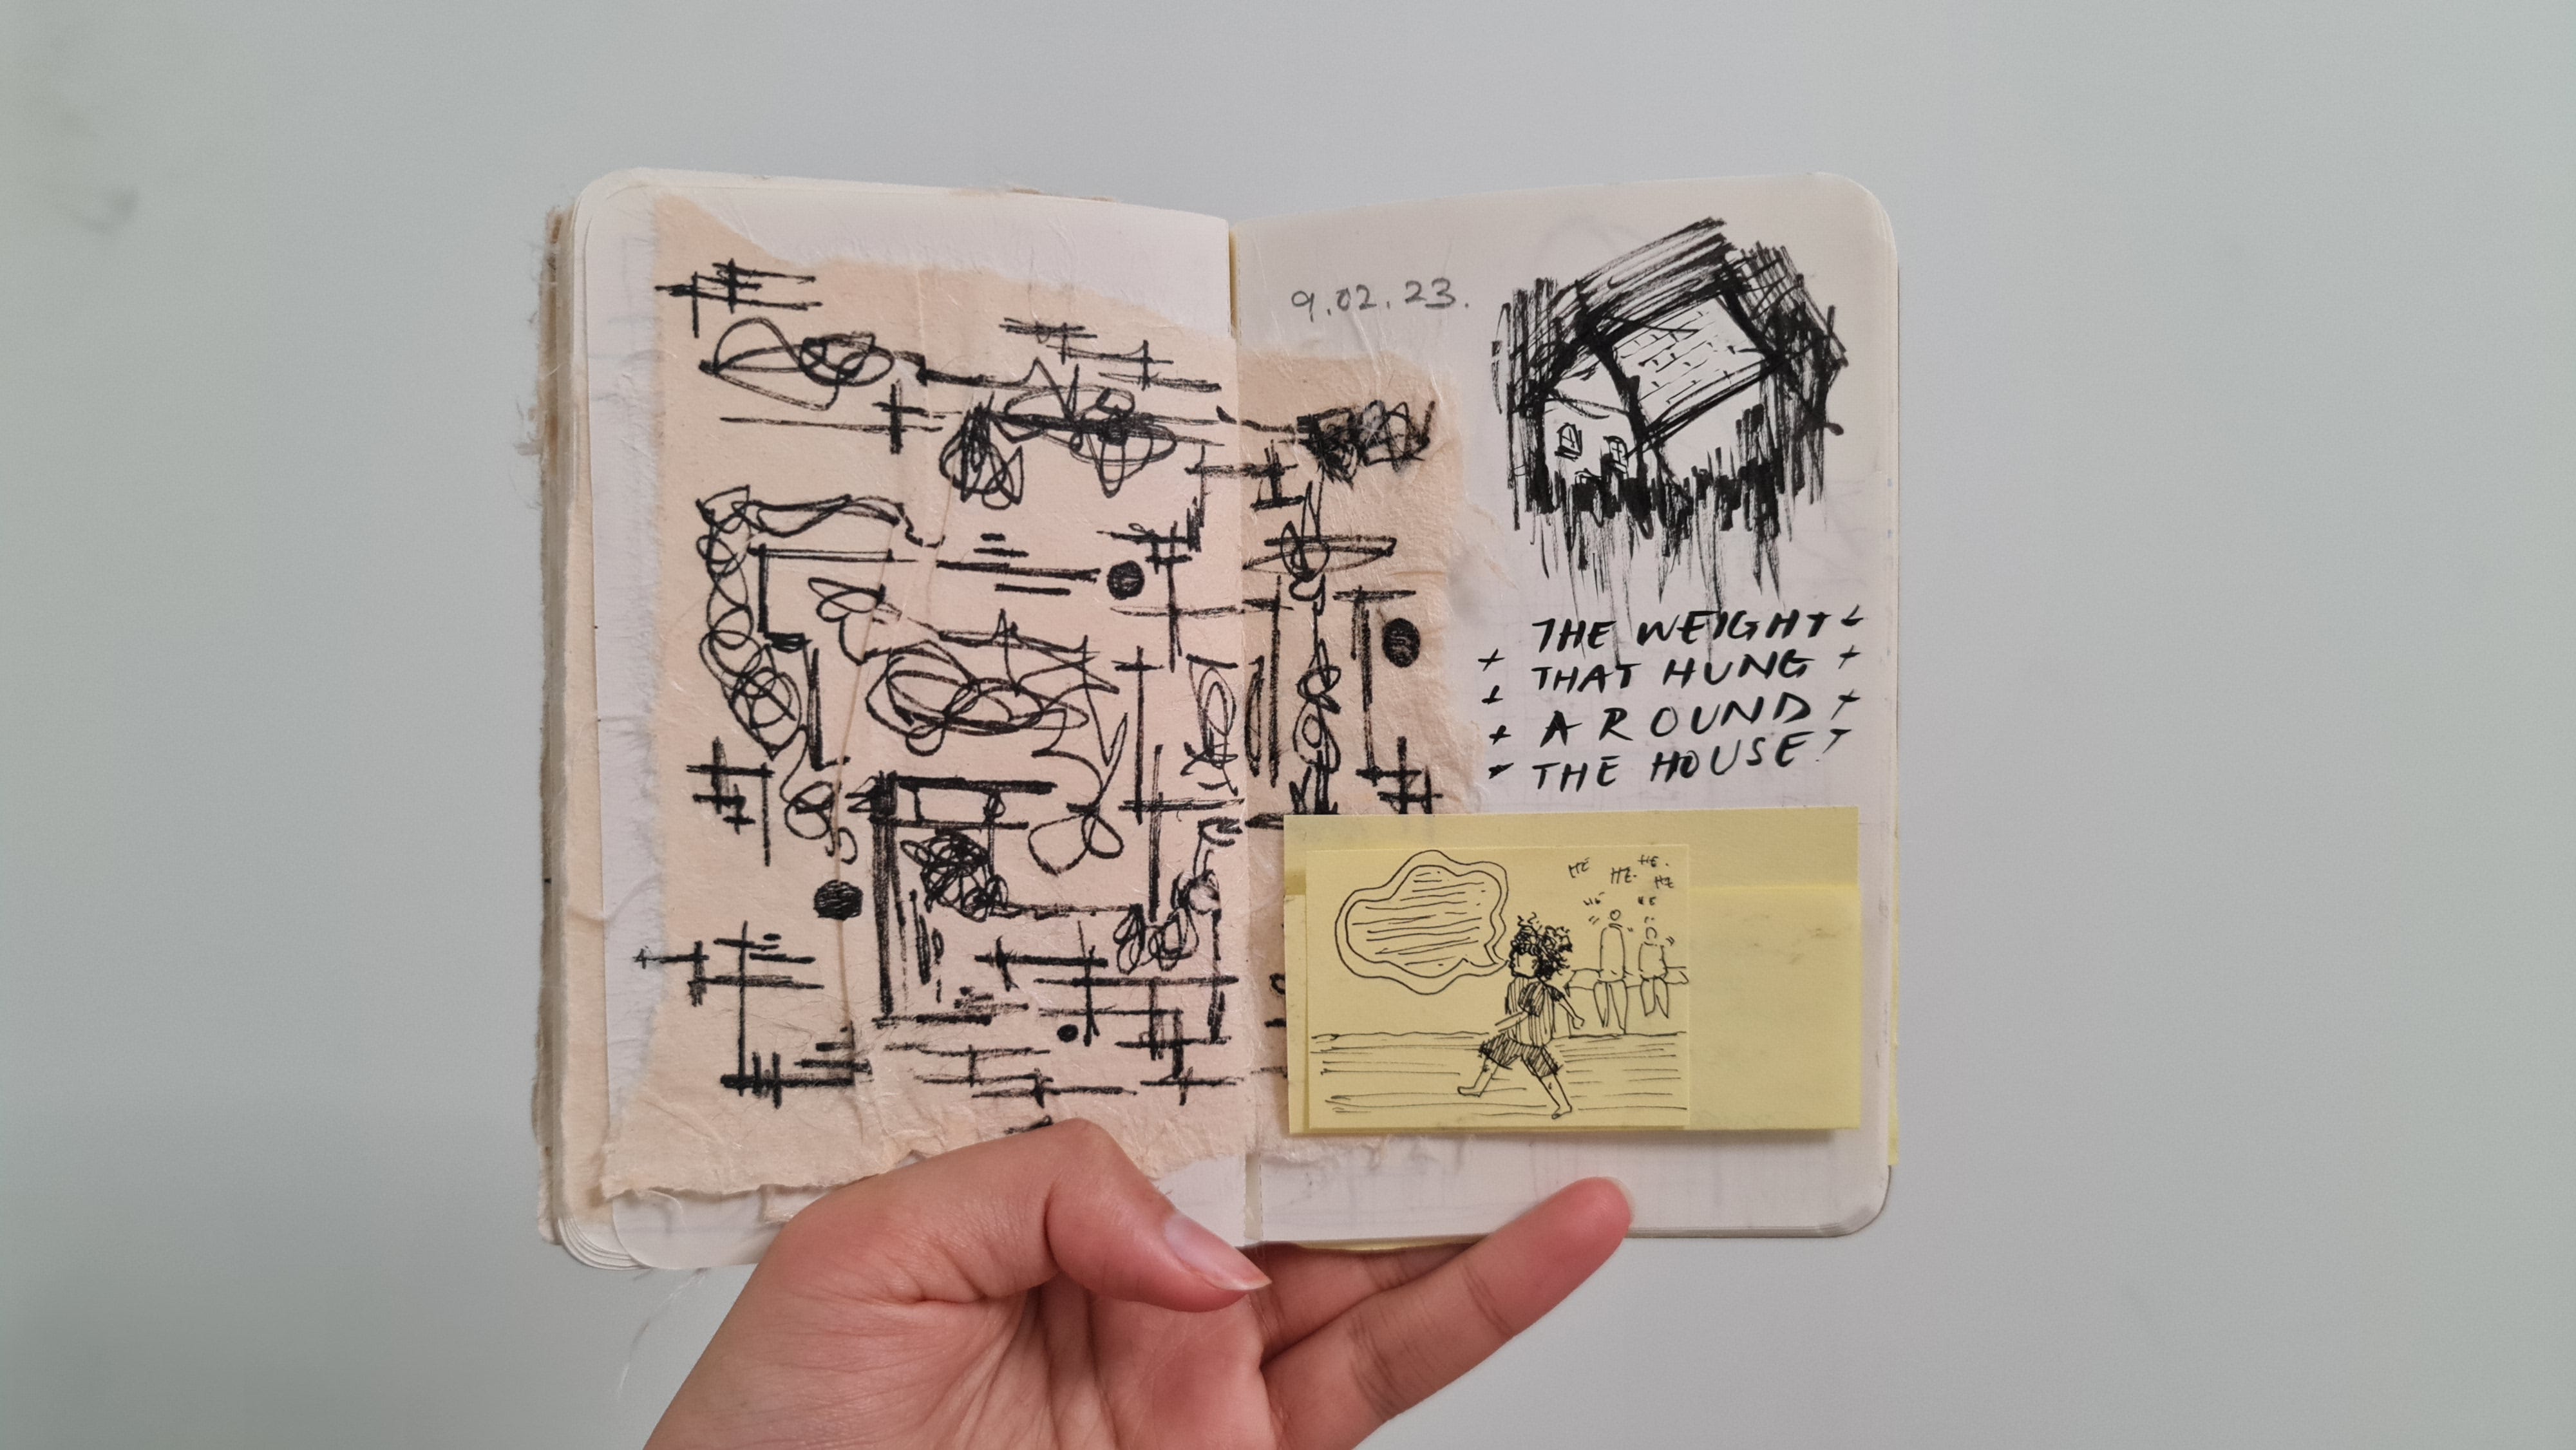 9.02.23.
THE WEIGHT
THAT HUNG
AROUND
THE HOUSE
HE HE. HE.
HE